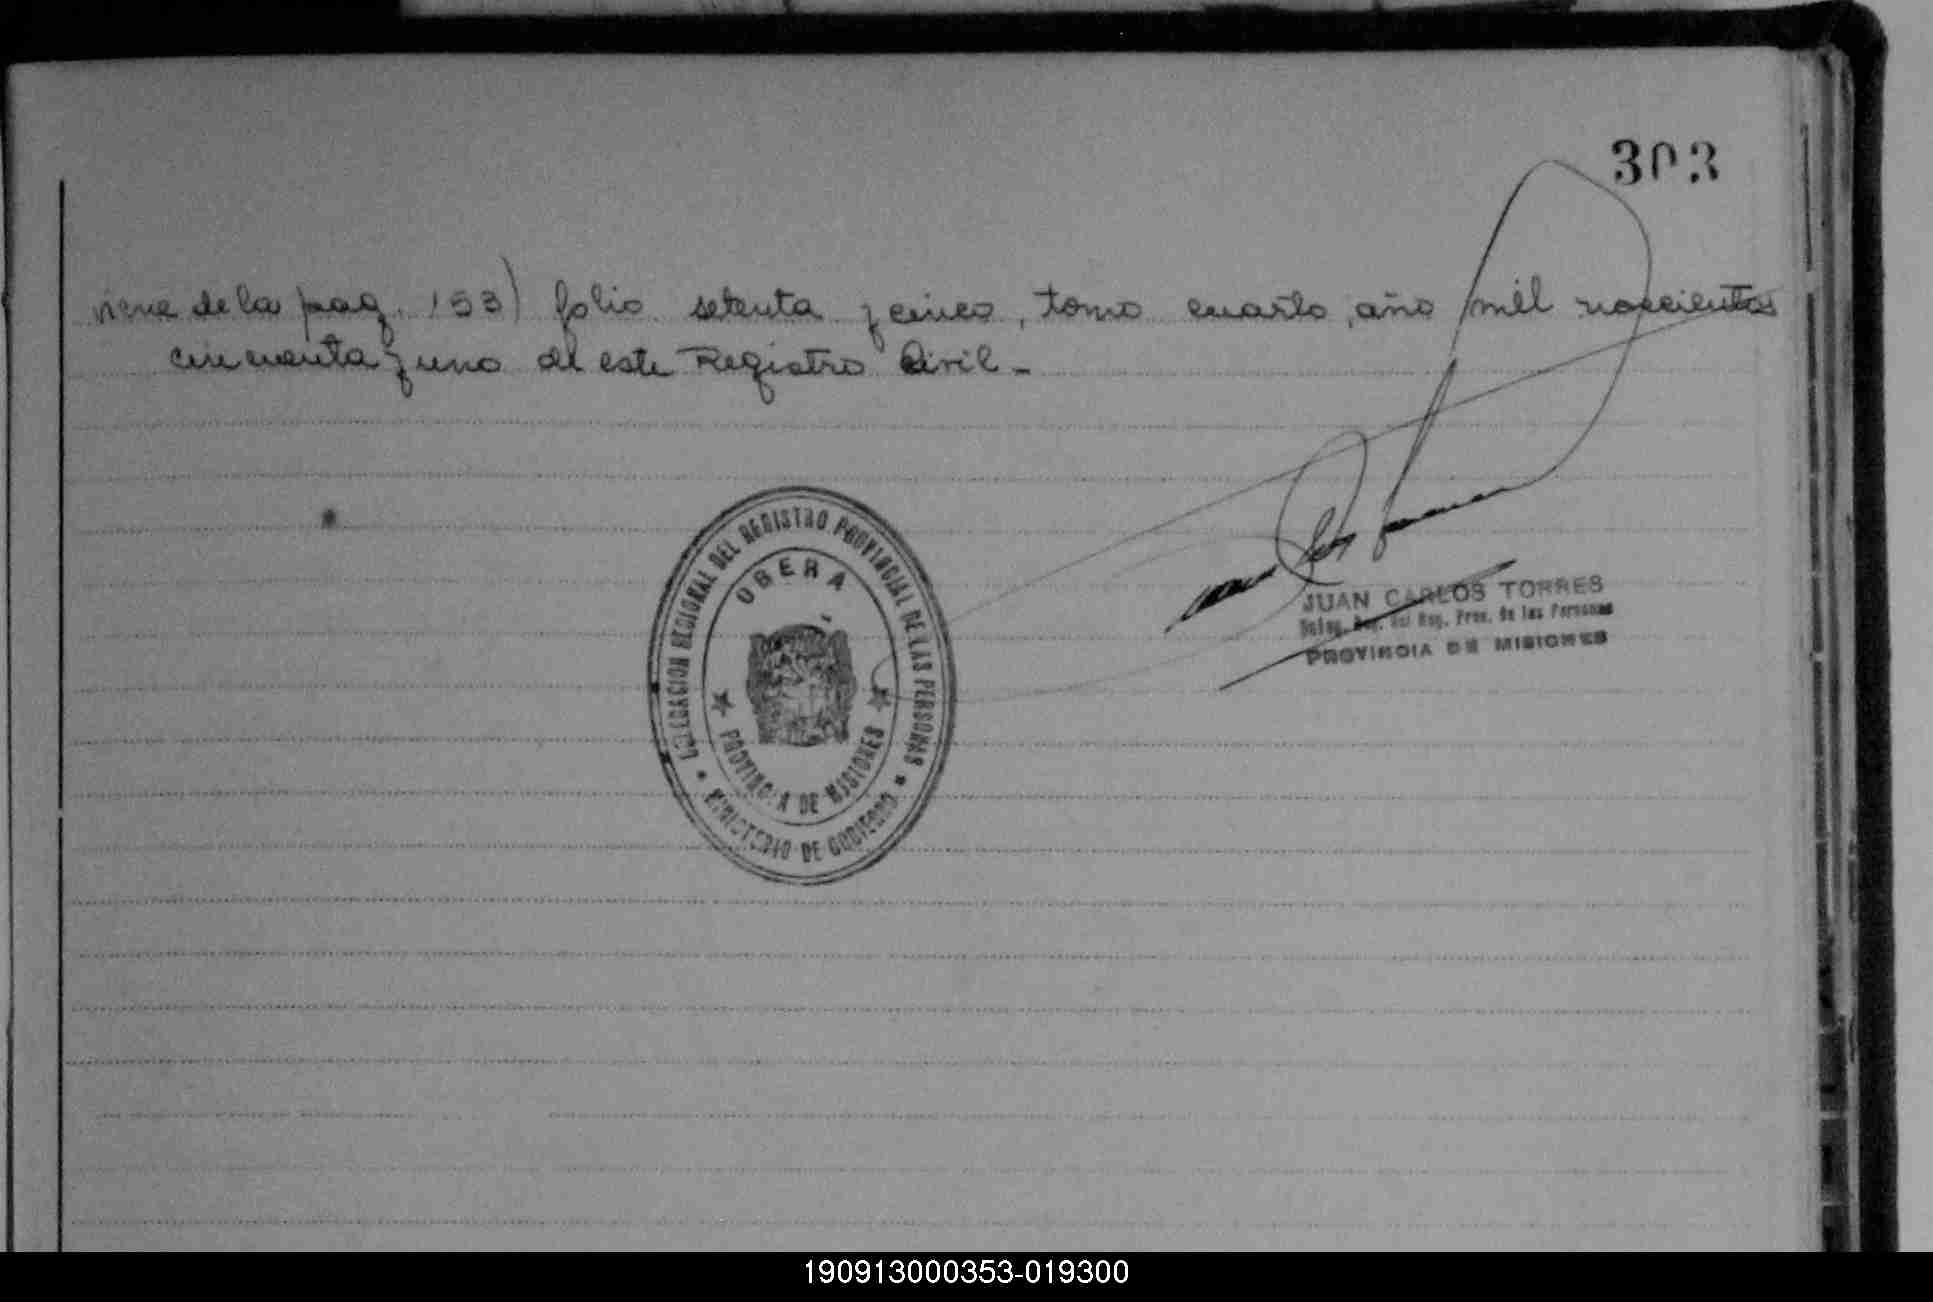 303
viene de la pag. 153) folio setenta y cinco, tomo cuarto, año mil novecientos
cincuenta y uno de este Registro Civil -
DELEGACION REGIONAL DEL REGISTRO PROVINCIAL DE LAS PERSONAS
OBERÁ
PROVINCIA DE MISIONES
MINISTERIO DE GOBIERNO
JUAN CARLOS TORRES
Deleg. Reg. del Reg. Prov. de las Personas
PROVINCIA DE MISIONES
190913000353-019300